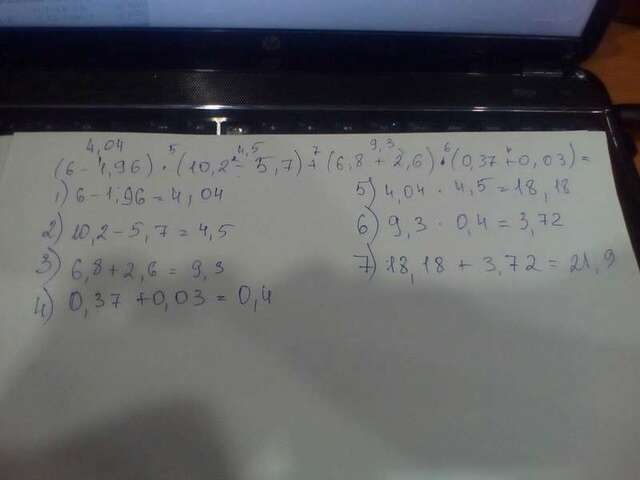 4,04 5 4,5 7 9,3 6 4
(6-1,96) · (10,2 - 5,7) + (6,8 + 2,6) · (0,37 + 0,03) =
1) 6-1,96 = 4,04
2) 10,2-5,7 = 4,5
3) 6,8+2,6 = 9,3
4) 0,37 +0,03 = 0,4
5) 4,04 · 4,5 = 18,18
6) 9,3 · 0,4 = 3,72
7) 18,18 + 3,72 = 21,9